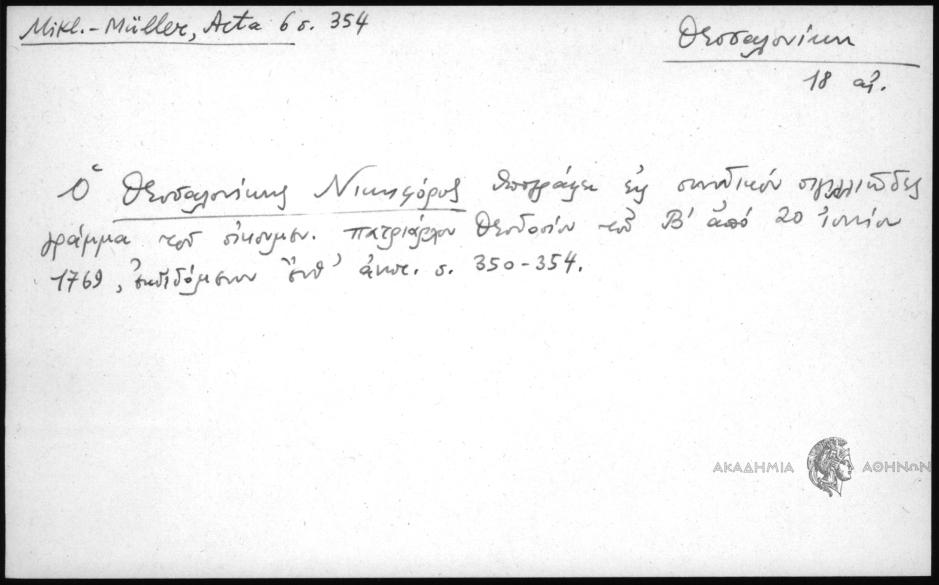 Mikl.-Müller, Acta 6 σ. 354
Θεσσαλονίκη
18 αἰ.
Ὁ Θεσσαλονίκης Νικηφόρος ὑπογράφει εἰς συνοδικόν σιγιλλιῶδες
γράμμα τοῦ οἰκουμεν. πατριάρχου Θεοδοσίου τοῦ Β' ἀπό 20 ἰουνίου
1769, ἐκδιδόμενον ἔνθ' ἀνωτ. σ. 350-354.
ΑΚΑΔΗΜΙΑ ΑΘΗΝΩΝ